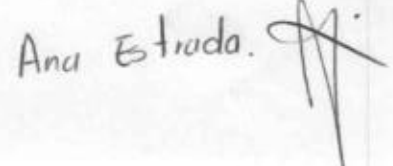 Ana Estrada.